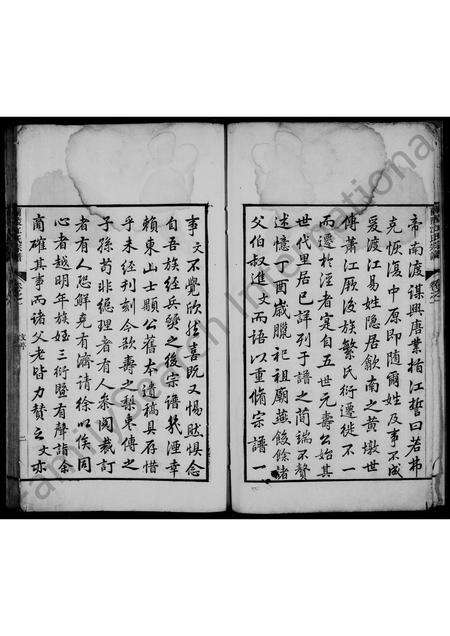 帝南渡謀興唐業指江誓曰若弗
克恢復中原即隨爾姓及事不成
爰渡江易姓隱居歙南之黃墩世
傳蕭江厥後族繁氏衍遷徙不一
而遷於涇者寔自五世元壽公始其
世代里居已詳列于譜之簡端不贅
述憶一爾歲臘祀祖廟燕餕餘諸
父伯叔進文而語以重脩宗譜一
事文不覺欣然喜既又惕然懼念
自吾族經兵燹之後宗譜湮幸
賴東山士顯公舊本遺稿具存惜
乎未經刊刻今欲壽之梨棗傳之
子孫苟非總理者有人參閱裁訂
者有人恐鮮克有濟請徐以俟同
心者越明年族姪三衍暨有聲諳余
南確其事而諸父老皆力贊之文亦
FamilySearch International